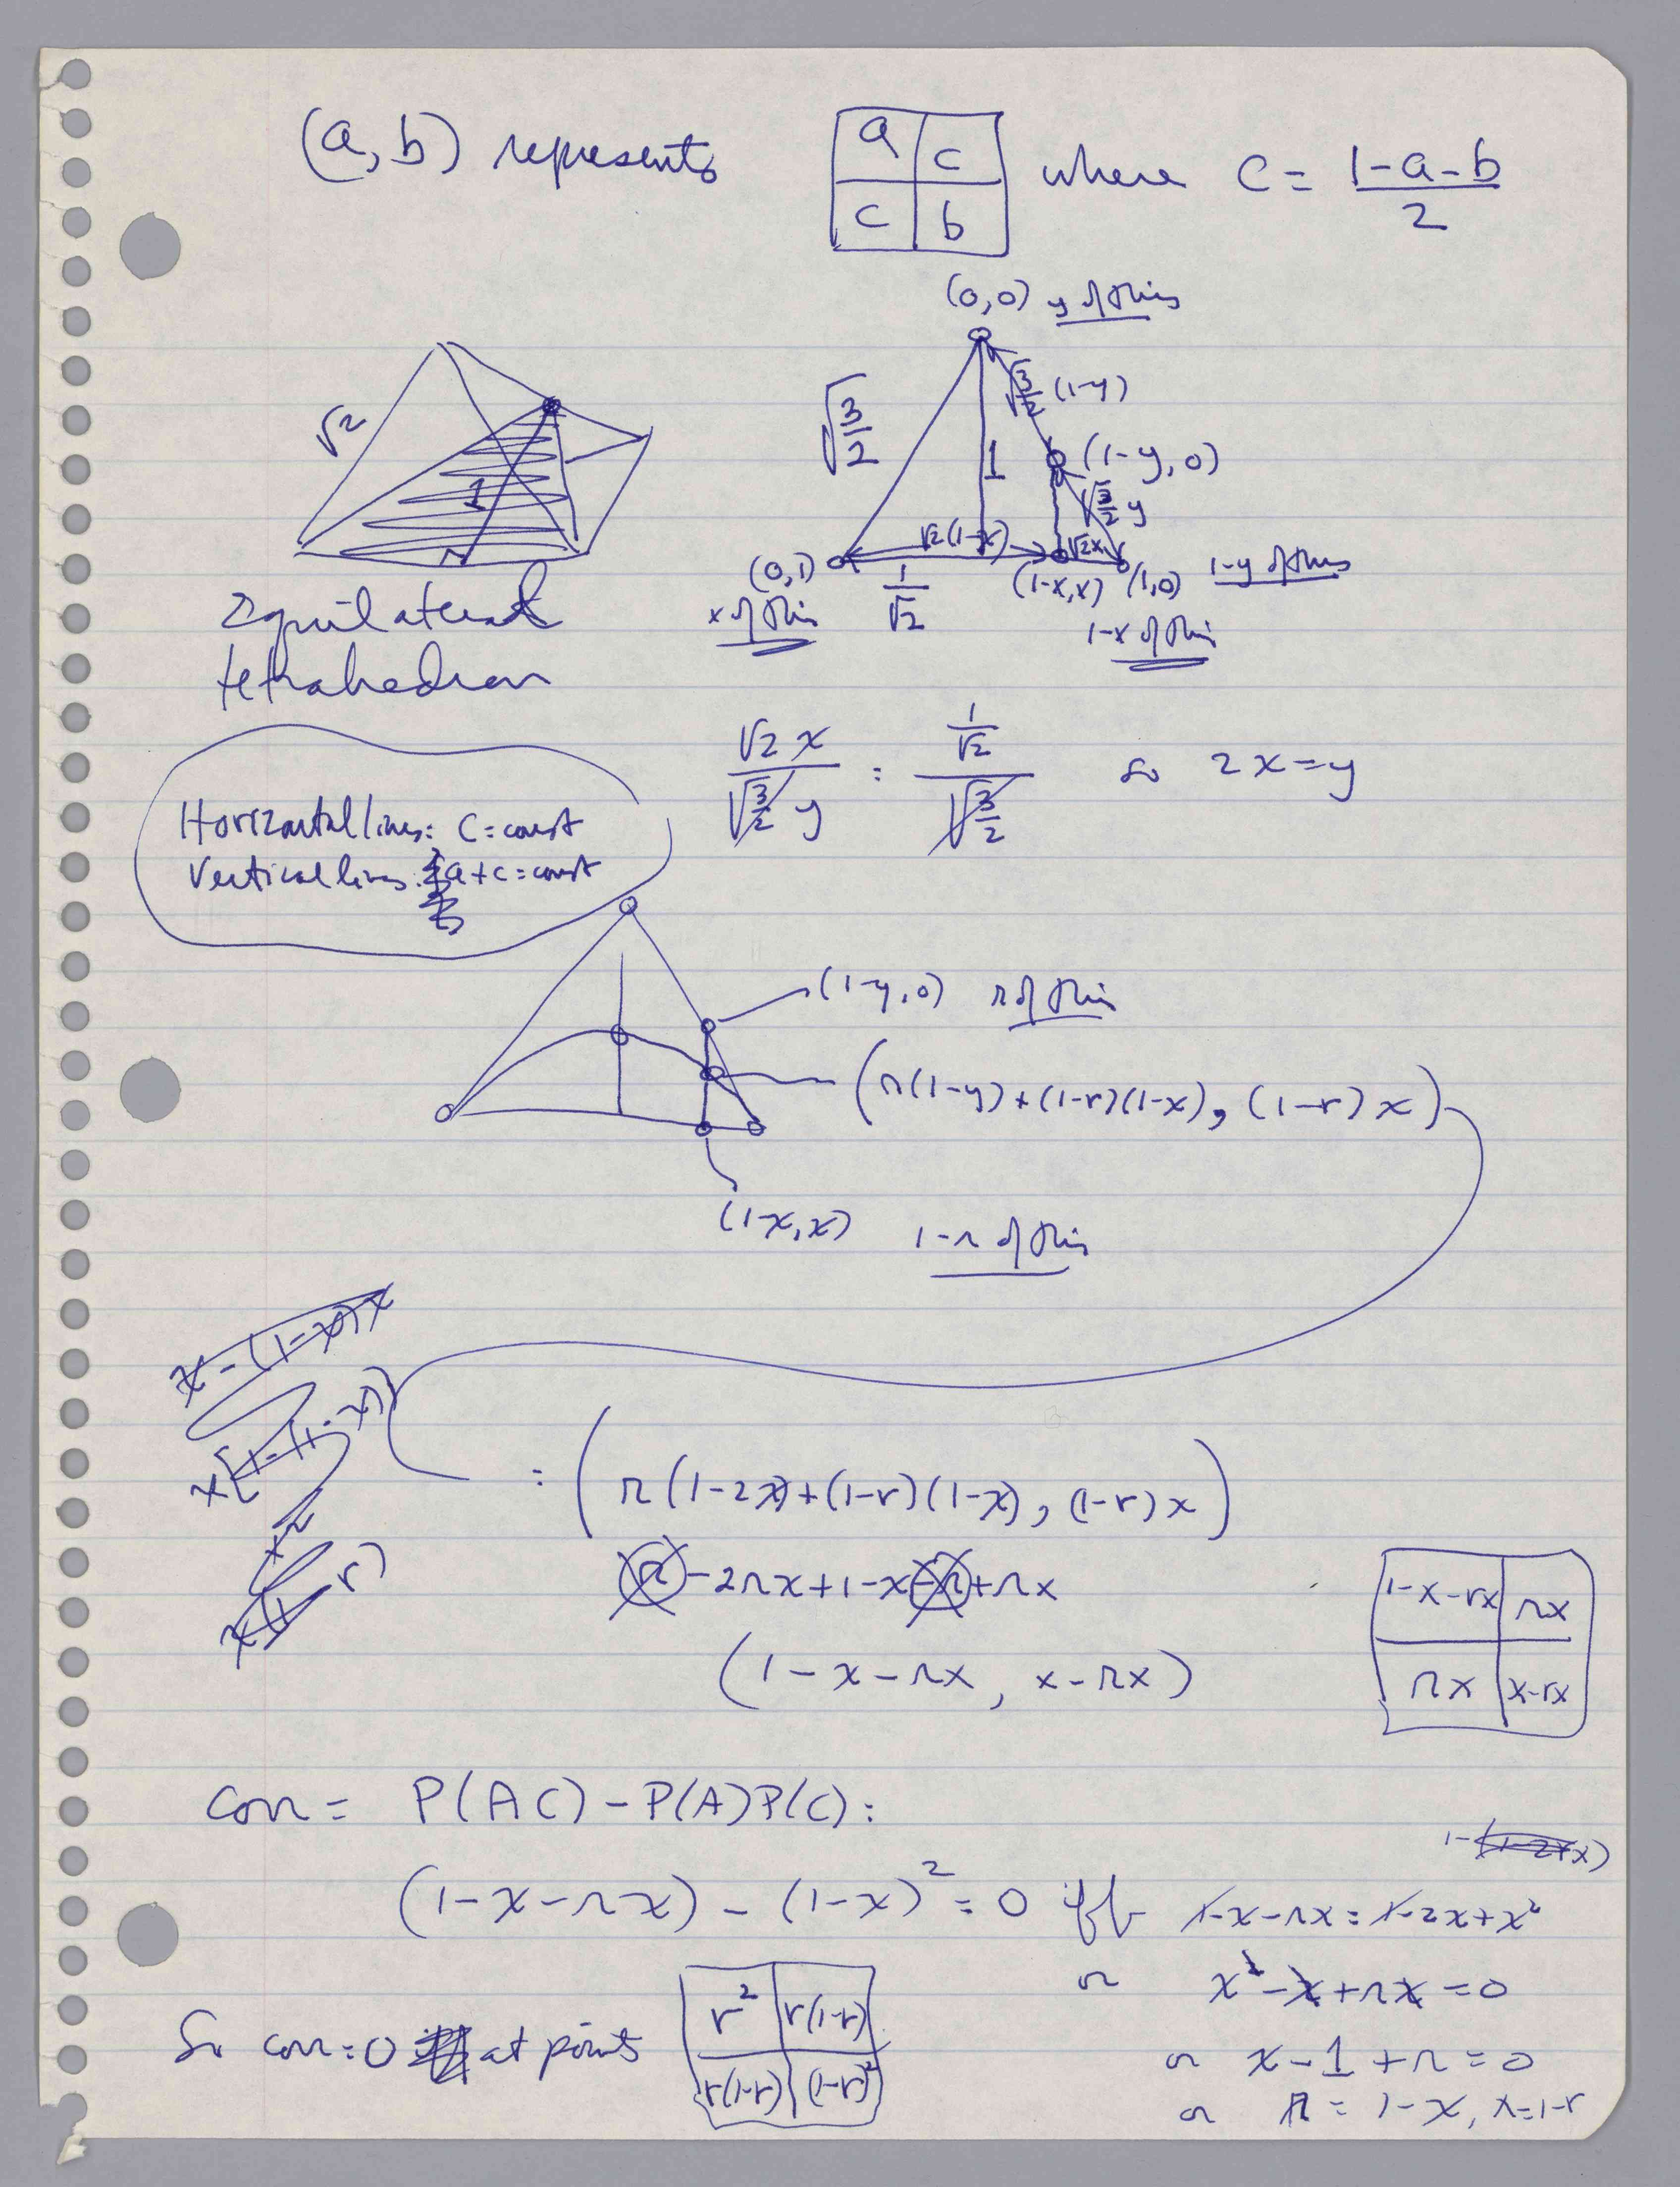 (a, b) represents
a c
c b
where c = (1-a-b)/2
(0,0) y of this
√2
1
Equilateral
tetrahedron
√(3/2)
√(3/2) (1-y)
1
(1-y, 0)
√(3/2) y
√2(1-x)
√2x
(0,1)
1/√2
(1-x,x)
(1,0)
1-y of this
x of this
1-x of this
√2 x / √(3/2) y = (1/√2) / √(3/2) so 2x=y
Horizontal lines: c=const
Vertical lines: a+c=const
(1-y, 0) r of this
(r(1-y)+(1-r)(1-x), (1-r)x)
(1-x,x) 1-r of this
x-(1-x)x
= (r(1-2x)+(1-r)(1-x), (1-r)x)
r-2rx+1-x-r+rx
(1-x-rx, x-rx)
1-x-rx rx
rx x-rx
corr = P(AC)-P(A)P(C):
(1-x-rx) - (1-x)² = 0 iff 1-x-rx = 1-2x+x²
or x²-x+rx=0
So corr=0 at points
r² r(1-r)
r(1-r) (1-r)²
or x-1+r=0
or r = 1-x, x=1-r